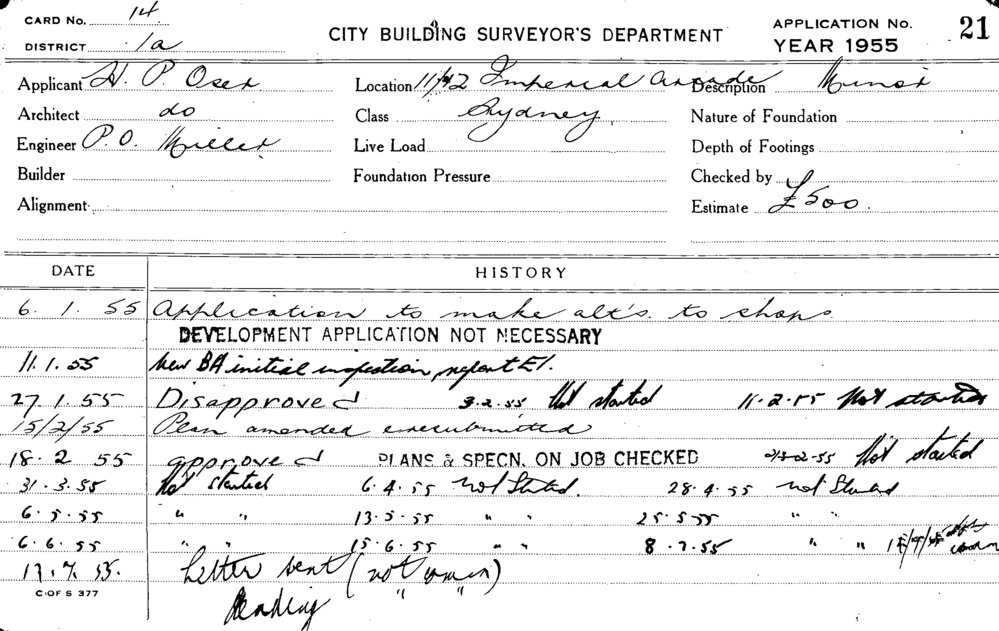 CARD No. 14
DISTRICT 1a
CITY BUILDING SURVEYOR'S DEPARTMENT
APPLICATION No. 21
YEAR 1955
Applicant H. P. Oser Location 11/12 Imperial Arcade Description Minor
Architect do Class Sydney Nature of Foundation
Engineer P.O. Miller Live Load Depth of Footings
Builder Foundation Pressure Checked by
Alignment Estimate £500.
DATE HISTORY
6. 1. 55 Application to make alt's. to shops
DEVELOPMENT APPLICATION NOT NECESSARY
11.1.55 New BA initial inspection, report E1.
27.1.55 Disapproved 3.2.55 Not started 11.2.55 Not started
15/2/55 Plan amended & resubmitted
18.2 55 approved PLANS & SPECN. ON JOB CHECKED -2-55 Not started
31.3.55 Not started 6.4.55 Not Started. 28.4.55 not Started
6.5.55 " " 13.5.55 " " 25.5.55 " "
6.6.55 " " 15.6.55 " " 8.7.55 " "
17.7.55. Letter sent ( )
" "
Pending
C OF S 377